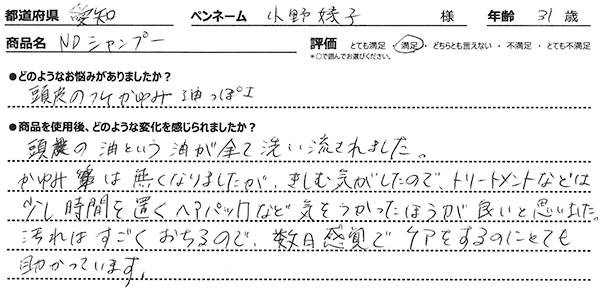 都道府県 愛知 ペンネーム 小野綾子 様 年齢 31 歳
商品名 NDシャンプー 評価 とても満足 ・ 満足 ・ どちらとも言えない ・ 不満足 ・ とても不満足
*○で囲んでお選びください。
●どのようなお悩みがありましたか？
頭皮のフケかゆみ 油っぽさ
●商品を使用後、どのような変化を感じられましたか？
頭皮の油という油が全て洗い流されました。
かゆみ等は無くなりましたが、きしむ気がしたので、トリートメントなどは
少し時間を置くヘアパックなど気をつかったほうが良いと思いました。
汚れはすごくおちるので、数日感覚でケアをするのにとても
助かっています。